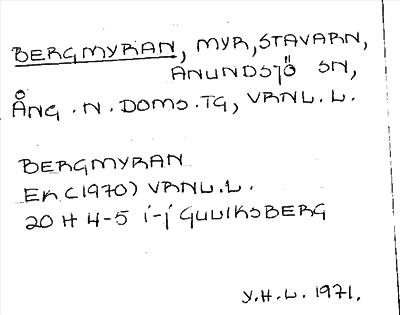 BERGMYRAN, MYR, STAVARN,
ANUNDSJÖ SN,
ÅNG. N. DOMS. TG, VRNL. L.
BERGMYRAN
EK (1970) VRNL. L.
20 H 4-5 i-j GULIKSBERG
Y. H. L. 1971.